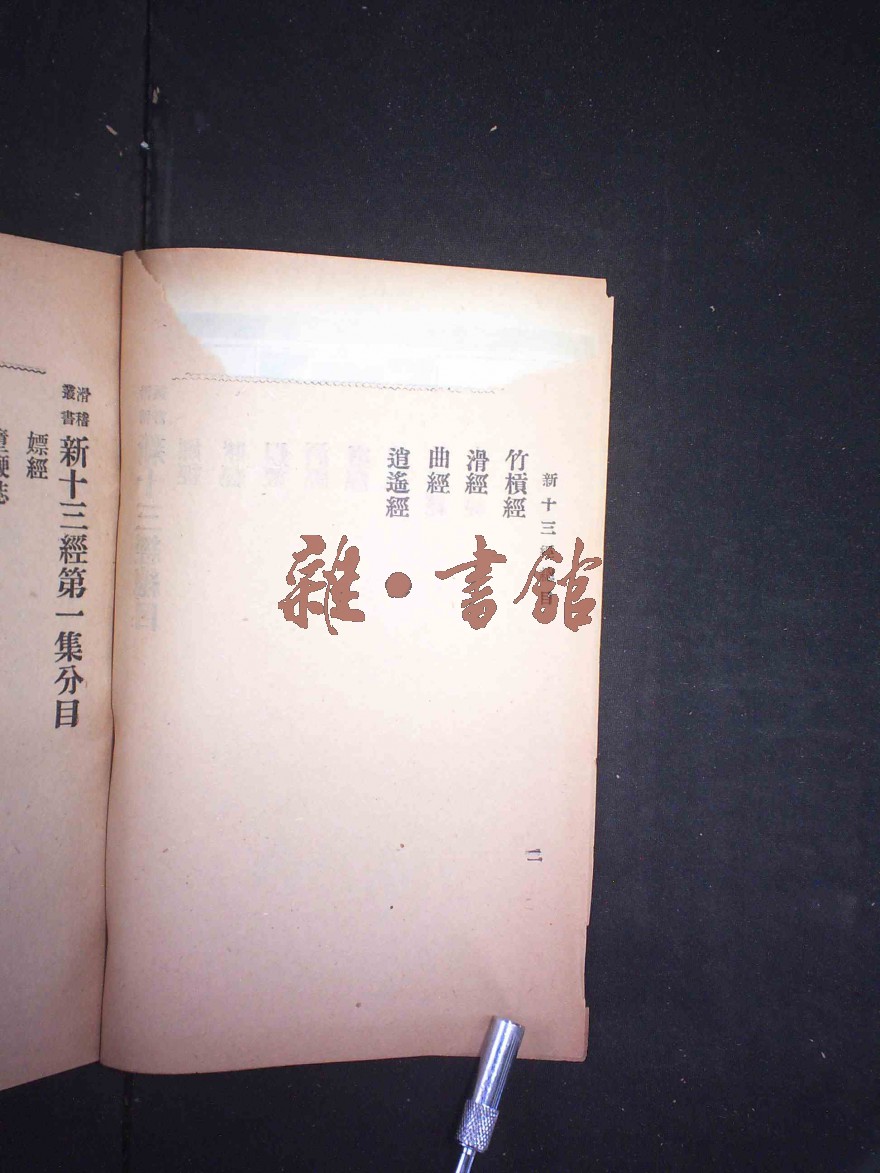 新十三經總目
竹槓經
滑經
曲經
逍遙經
二
滑稽
叢書
新十三經第一集分目
嫖經
雜・書館